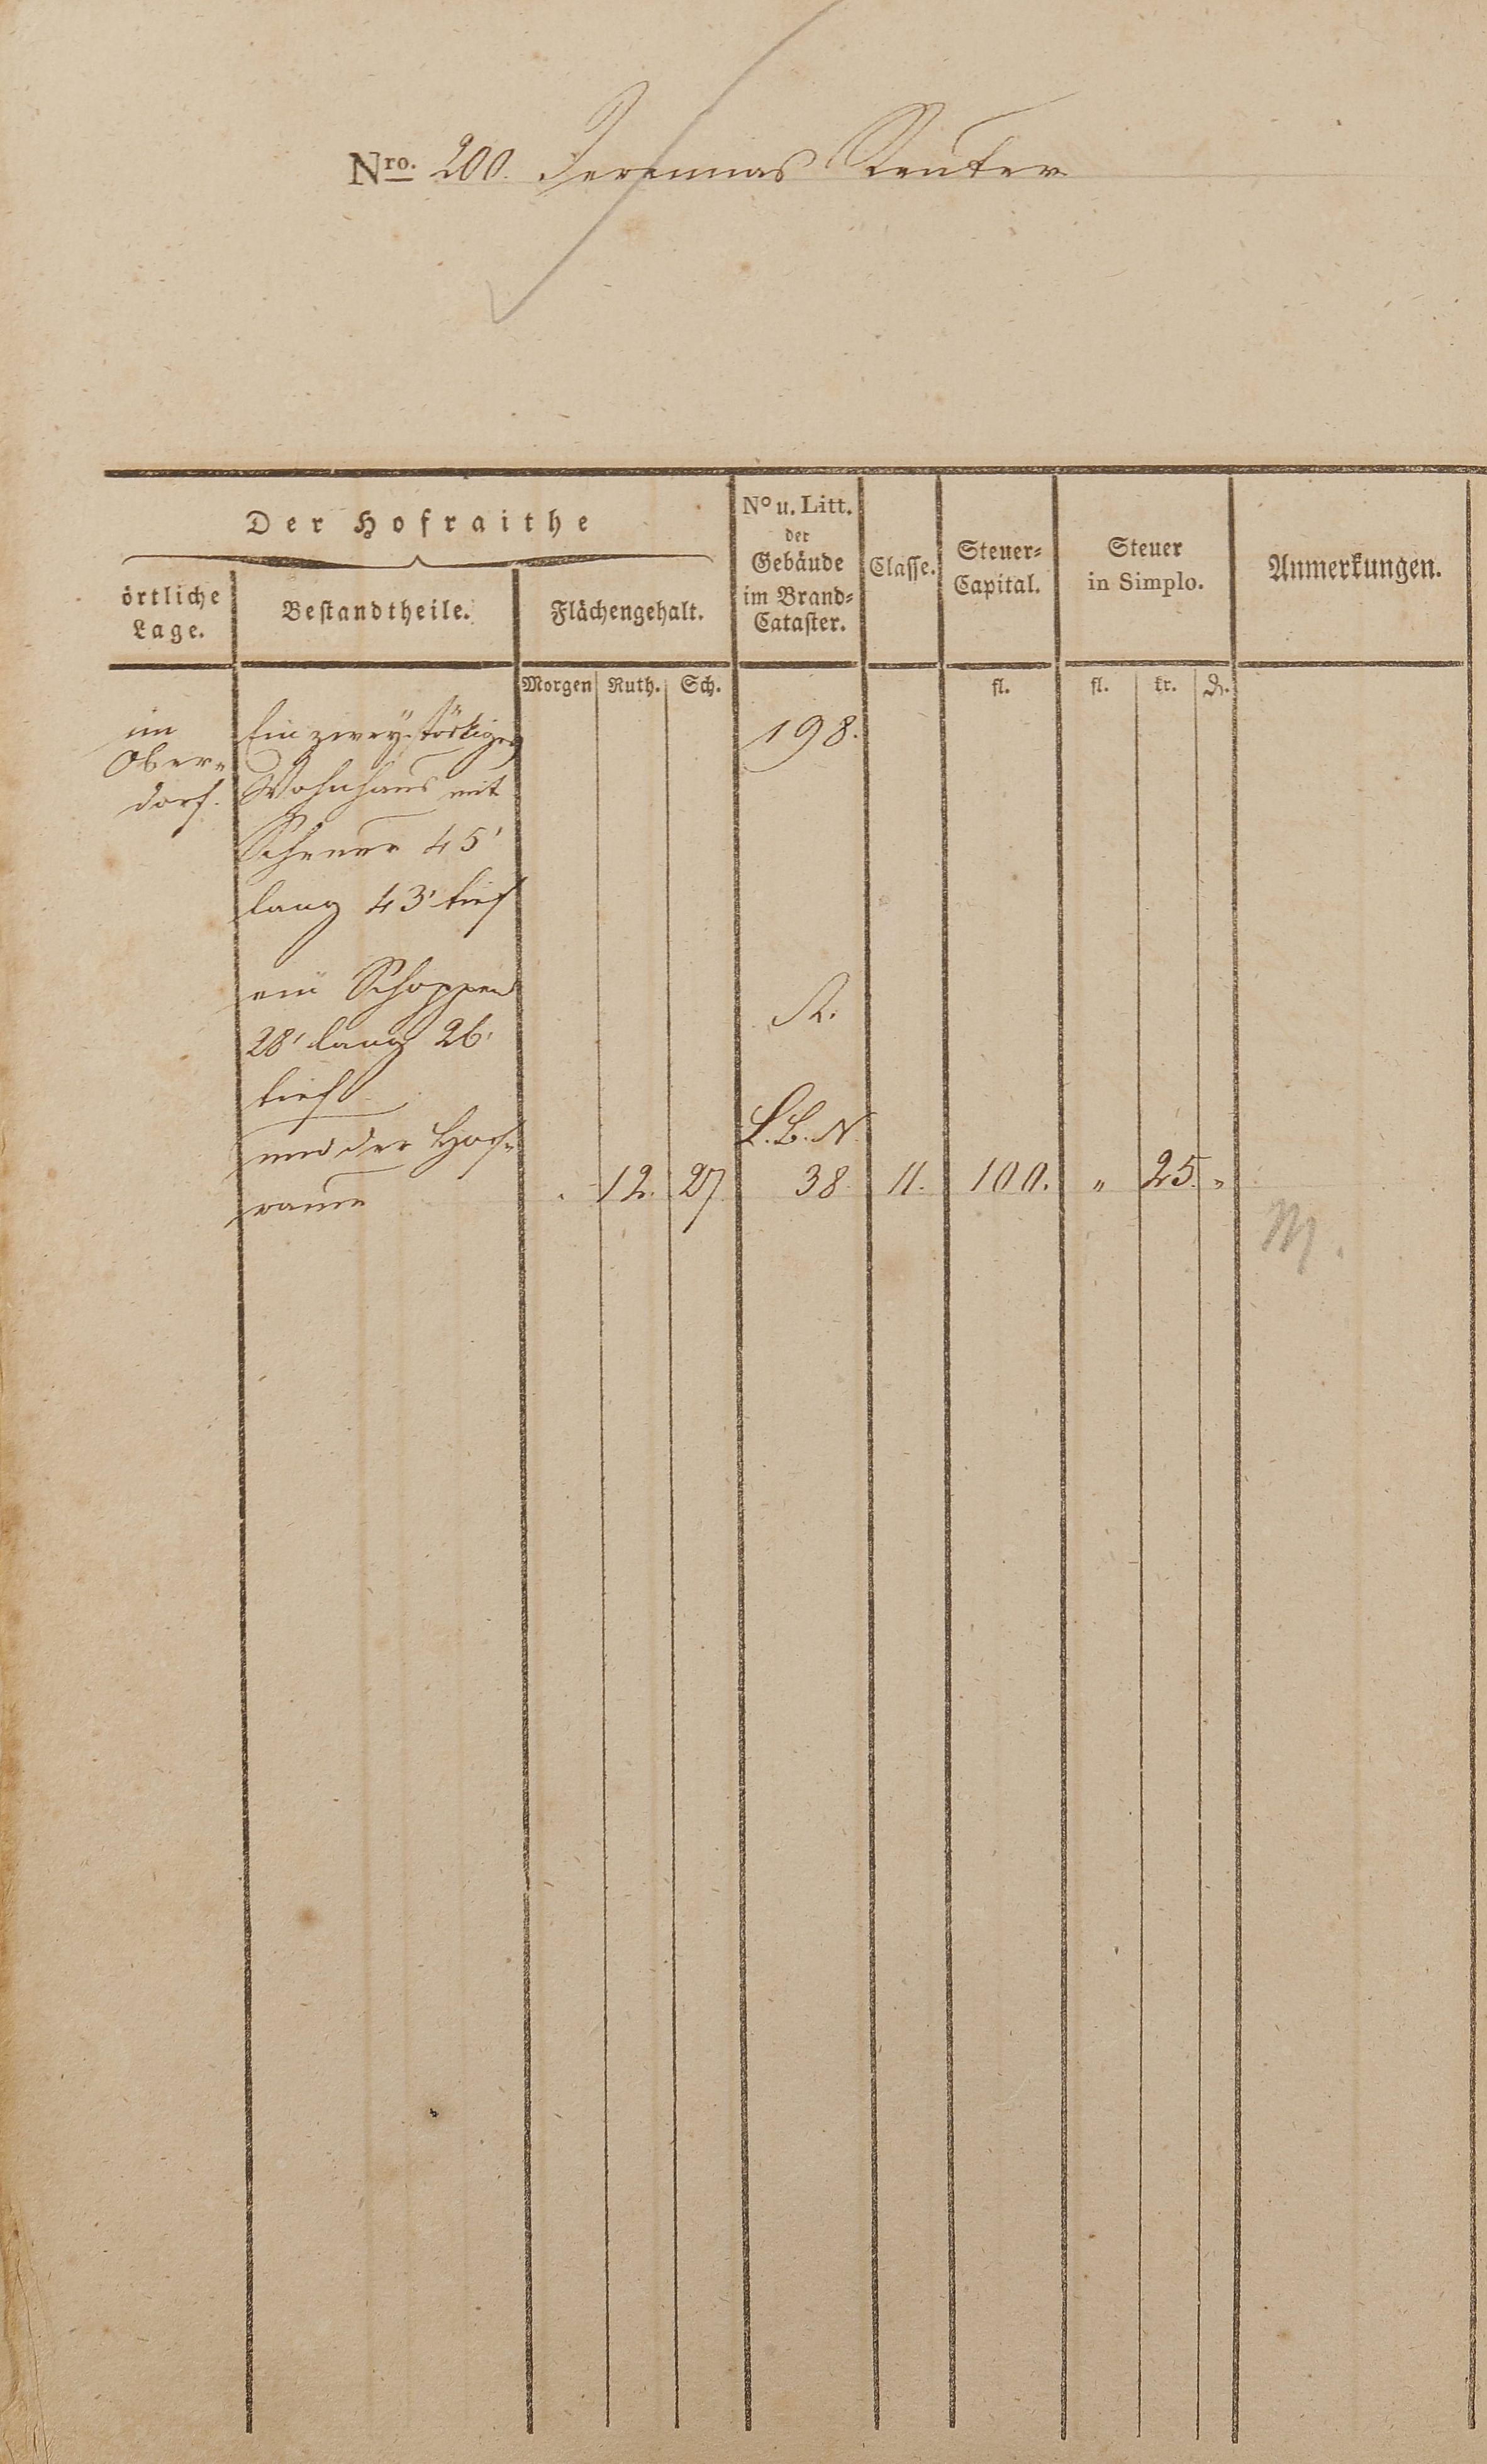 Nro. 200. Jeremias Reuter
Der Hofraithe
örtliche Lage.
Bestandtheile.
Flächengehalt.
No u. Litt. der Gebäude im Brand-Cataster.
Classe.
Steuer-Capital.
Steuer in Simplo.
Anmerkungen.
Morgen Ruth. Sch. fl. fl. kr. ₰.
im
Ober-
dorf.
Ein zwey stöckiges 198.
Wohnhaus mit
Scheuer 45'
lang 43' tief
ein Schoppen
28' lang 26'
tief
und der Hof-
raum
A.
L. B. N.
. 12. 27 38. 11. 100. " 25. "
M.